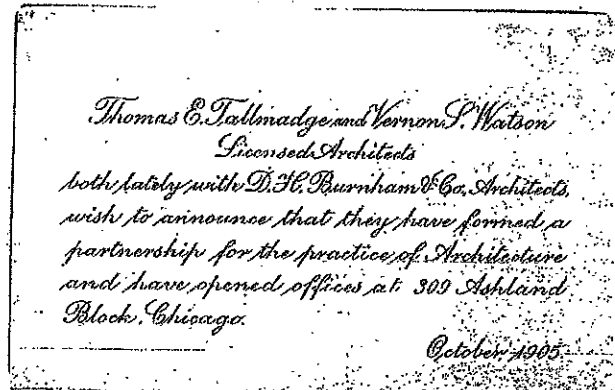 Thomas E. Tallmadge and Vernon S. Watson
Licensed Architects
both lately with D. H. Burnham & Co. Architects,
wish to announce that they have formed a
partnership for the practice of Architecture
and have opened offices at 309 Ashland
Block, Chicago.
October 1905